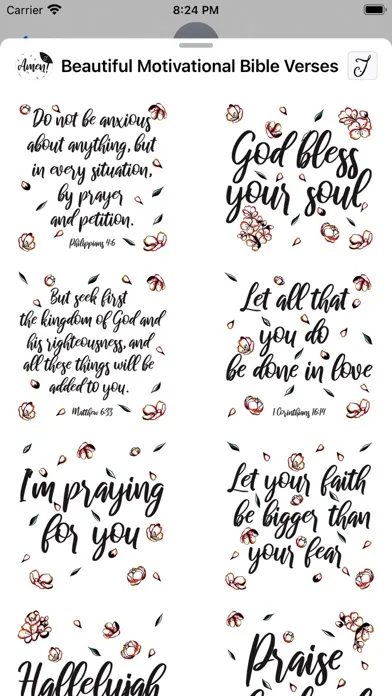 Carrier 8:24 PM
Amen! Beautiful Motivational Bible Verses J
Do not be anxious
about anything, but
in every situation,
by prayer
and petition.
Philippians 4:6
God bless
your soul
But seek first
the kingdom of God and
his righteousness, and
all these things will be
added to you.
Matthew 6:33
Let all that
you do
be done in love
1 Corinthians 16:14
I'm praying
for you
Let your faith
be bigger than
your fear
Hallelujah
Praise